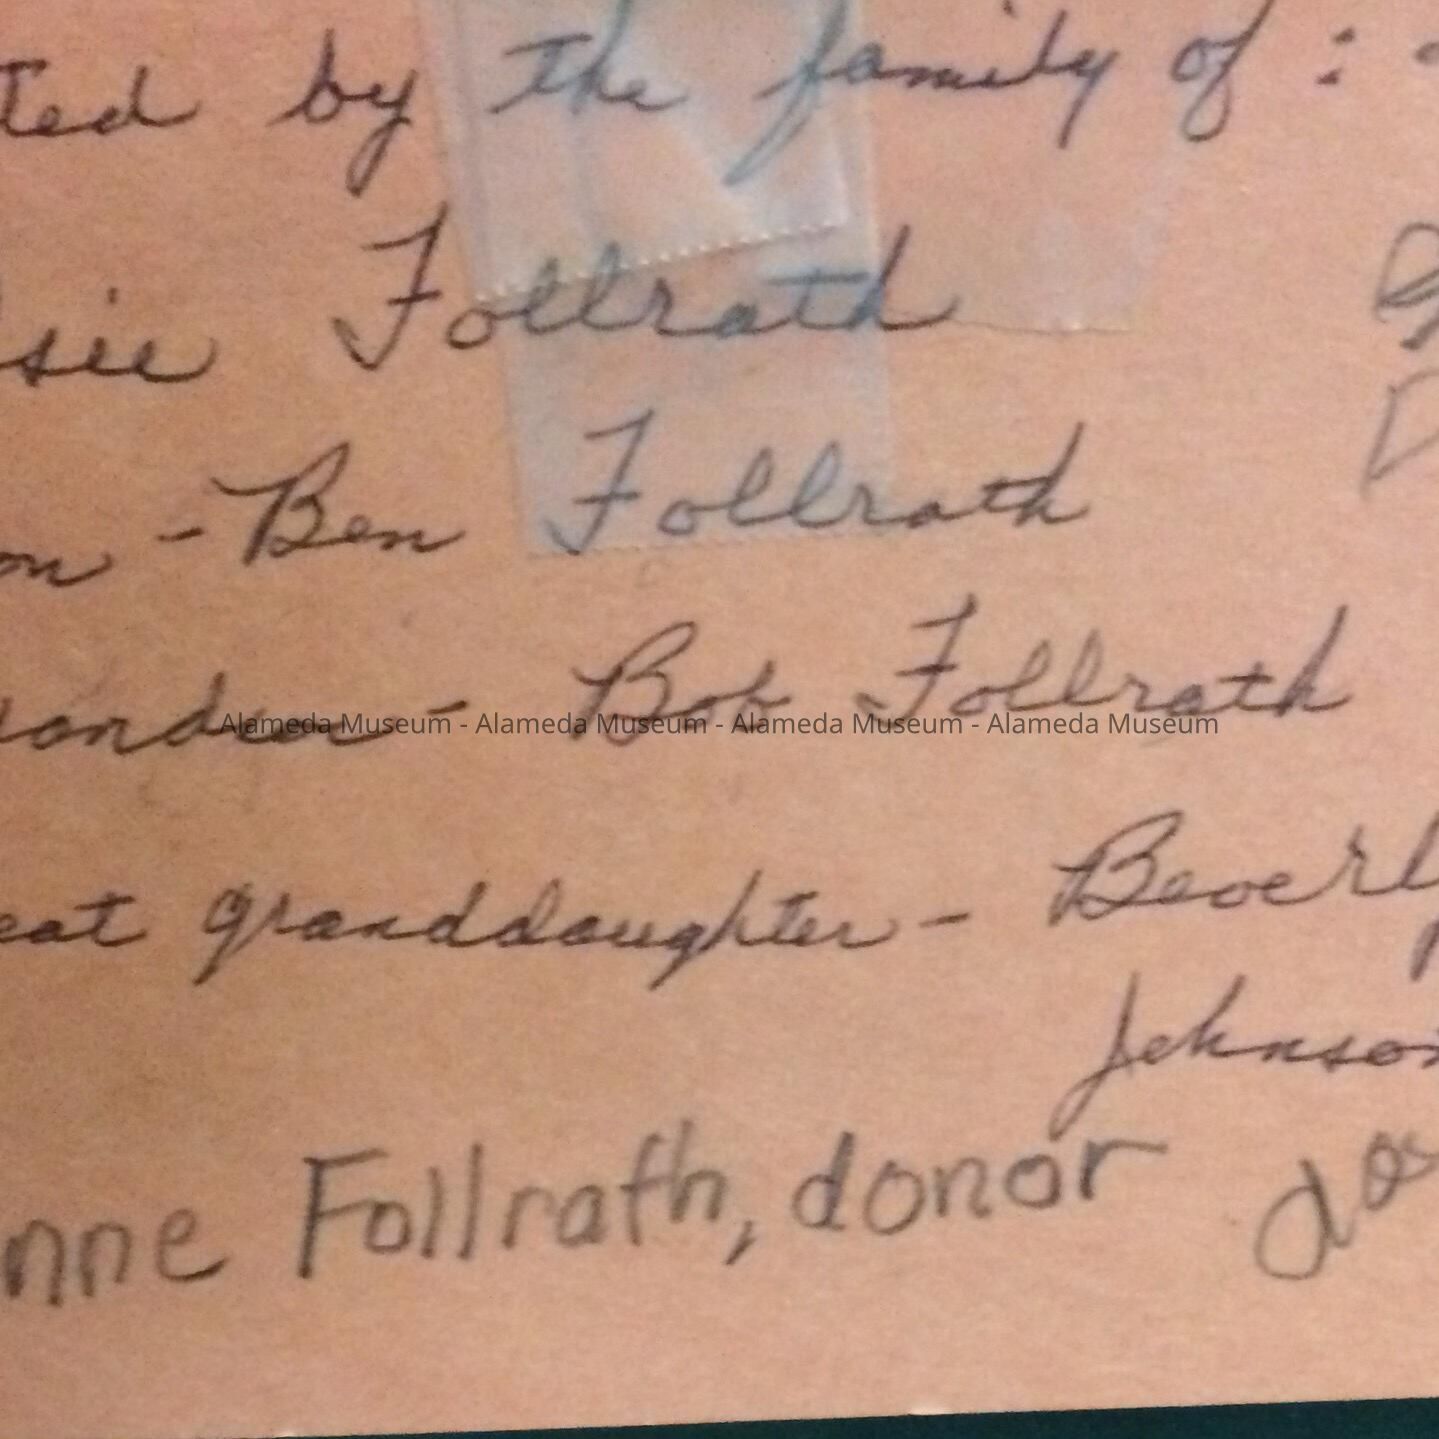 ted by the family of :
sie Follrath
on - Ben Follrath
- Bob Follrath
Alameda Museum - Alameda Museum - Alameda Museum - Alameda Museum
eat granddaughter - Beverly
Johnson
nne Follrath, donor